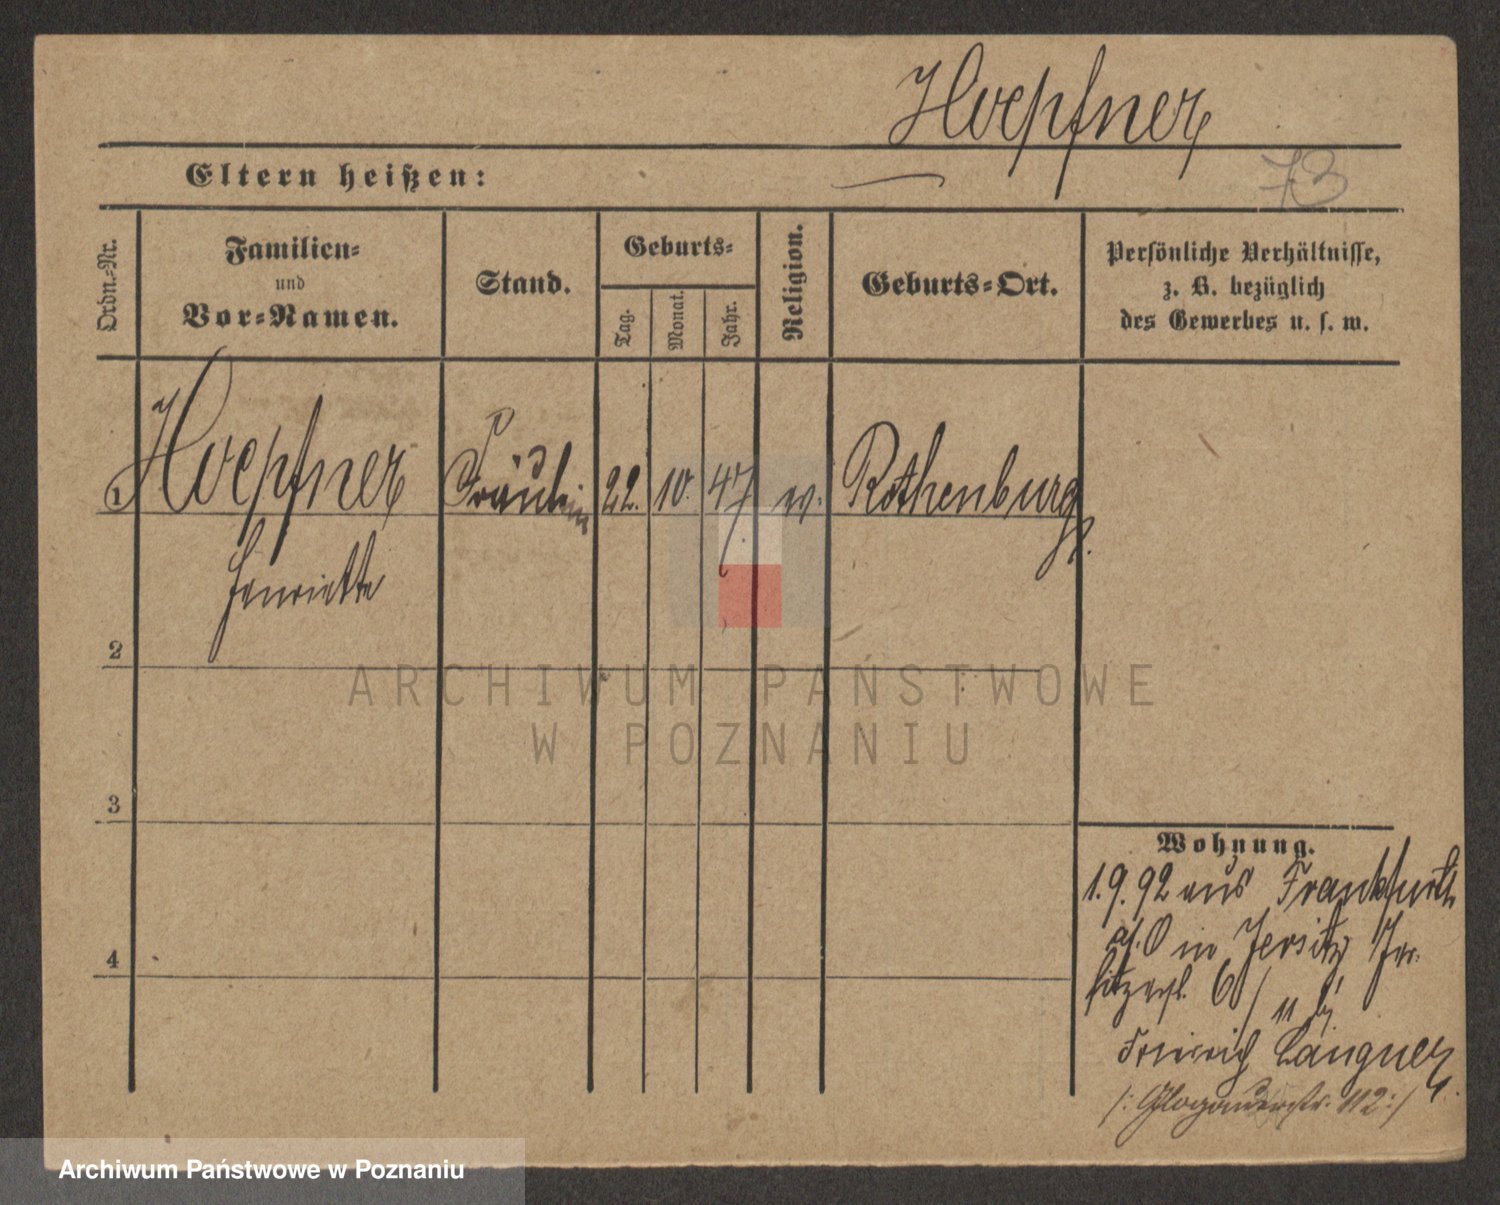 Hoepfner
Eltern heißen:
73
Ordn.-Nr.
Familien-
und
Vor-Namen.
Stand.
Geburts-
Tag.
Monat.
Jahr.
Religion.
Geburts-Ort.
Persönliche Verhältnisse,
z. B. bezüglich
des Gewerbes u. s. w.
1 Hoepfner Fräulein 22. 10. 47. ev. Rothenburg
Henriette
2
3
4
Wohnung.
1.9.92 aus Frankfurth
a/O in Jersitz Jer-
sitzerst. 6/11 b/
Langner
/: Glogauerstr. 112 :/
ARCHIWUM PAŃSTWOWE
W POZNANIU
Archiwum Państwowe w Poznaniu